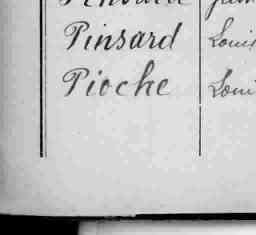 Pinsard Louis
Pioche Loui